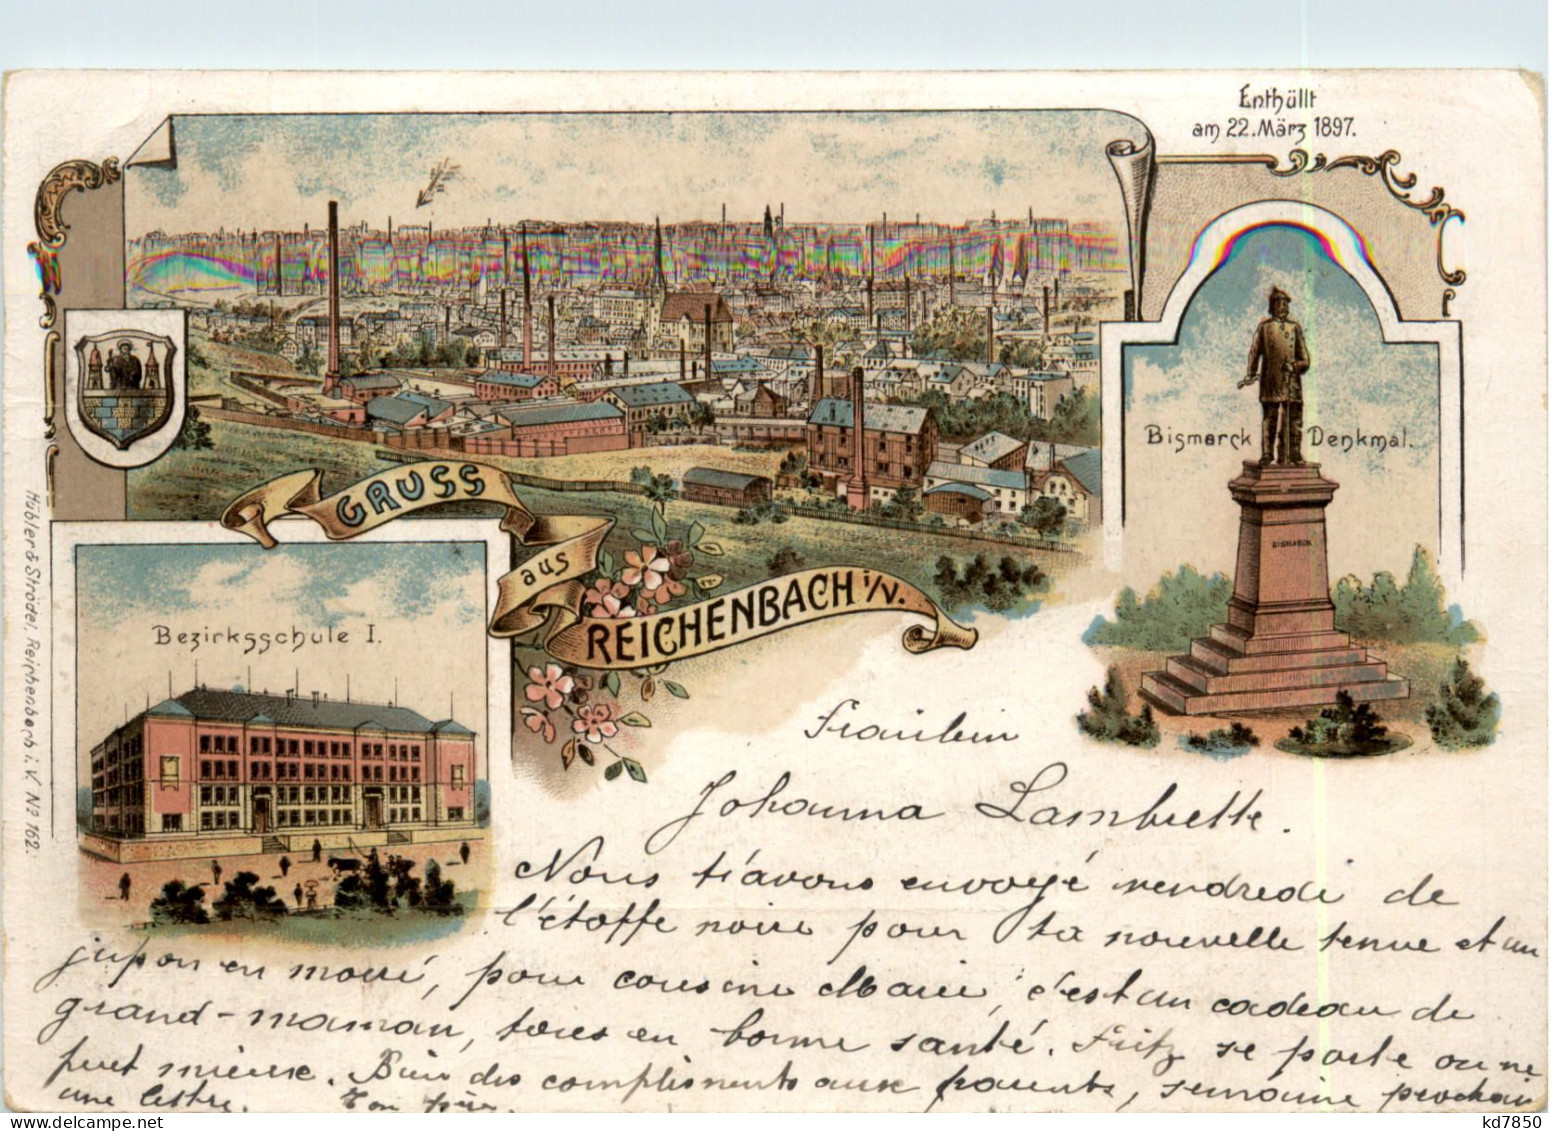 Enthüllt
am 22. März 1897.
Bismarck Denkmal.
BISMARCK
GRUSS
aus
REICHENBACH i/V.
Bezirksschule I.
Hübler & Strödel, Reichenbach i. V. Nº 162.
Fräulein
Johanna Lambrette.
Nous t'avons envoyé vendredi de
l'étoffe noire pour ta nouvelle tenue et un
jupon en moiré, pour cousine Marie, c'est un cadeau de
grand-maman, tous en bonne santé. Fritz se porte on ne
peut mieux. Bien des compliments aux parents, semaine prochain
une lettre. Ton père.
kd7850